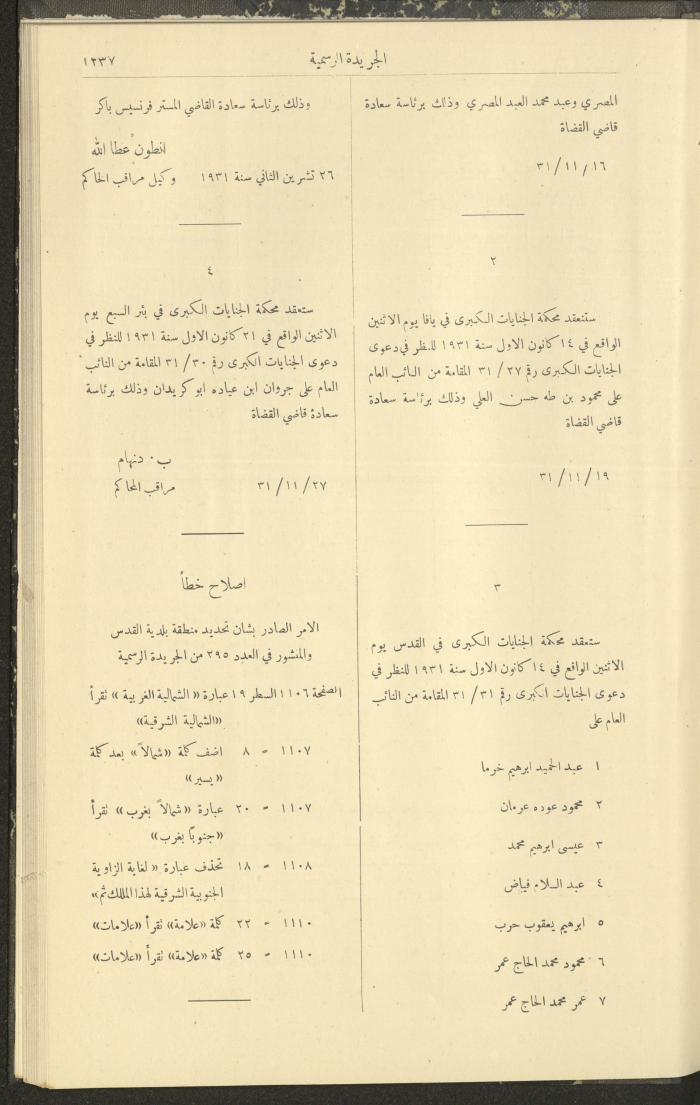 الجريدة الرسمية
١٢٣٧
المصري وعبد محمد العبد المصري وذلك برئاسة سعادة
قاضي القضاة
٣١/١١/١٦
٢
ستنعقد محكمة الجنايات الكبرى في يافا يوم الاثنين
الواقع في ١٤ كانون الاول سنة ١٩٣١ للنظر في دعوى
الجنايات الكبرى رقم ٣١/٢٧ المقامة من النائب العام
على محمود بن طه حسن العلي وذلك برئاسة سعادة
قاضي القضاة
٣١/١١/١٩
٣
ستعقد محكمة الجنايات الكبرى في القدس يوم
الاثنين الواقع في ١٤ كانون الاول سنة ١٩٣١ للنظر في
دعوى الجنايات الكبرى رقم ٣١/٣١ المقامة من النائب
العام على
١ عبد الحميد ابرهيم خرما
٢ محمود عوده عرمان
٣ عيسى ابرهيم محمد
٤ عبد السلام فياض
٥ ابرهيم يعقوب حرب
٦ محمود محمد الحاج عمر
٧ عمر محمد الحاج عمر
وذلك برئاسة سعادة القاضي المستر فرنسيس باكر
انطون عطا الله
٢٦ تشرين الثاني سنة ١٩٣١ وكيل مراقب المحاكم
٤
ستعقد محكمة الجنايات الكبرى في بئر السبع يوم
الاثنين الواقع في ٢١ كانون الاول سنة ١٩٣١ للنظر في
دعوى الجنايات الكبرى رقم ٣١/٣٠ المقامة من النائب
العام على جروان ابن عياده ابو كريدان وذلك برئاسة
سعادة قاضي القضاة
ب . دنهام
٣١/١١/٢٧ مراقب المحاكم
اصلاح خطأ
الامر الصادر بشان تحديد منطقة بلدية القدس
والمنشور في العدد ٢٩٥ من الجريدة الرسمية
الصفحة ١١٠٦ السطر ١٩ عبارة «الشمالية الغربية» تقرأ
«الشمالية الشرقية»
١١٠٧ = ٨ اضف كلمة «شمالاً» بعد كلمة
«يسير»
١١٠٧ = ٢٠ عبارة «شمالاً بغرب» تقرأ
«جنوبًا بغرب»
١١٠٨ = ١٨ تحذف عبارة «لغاية الزاوية
الجنوبية الشرقية لهذا الملك ثم»
١١١٠ = ٢٢ كلمة «علامة» تقرأ «علامات»
١١١٠ = ٢٥ كلمة «علامة» تقرأ «علامات»